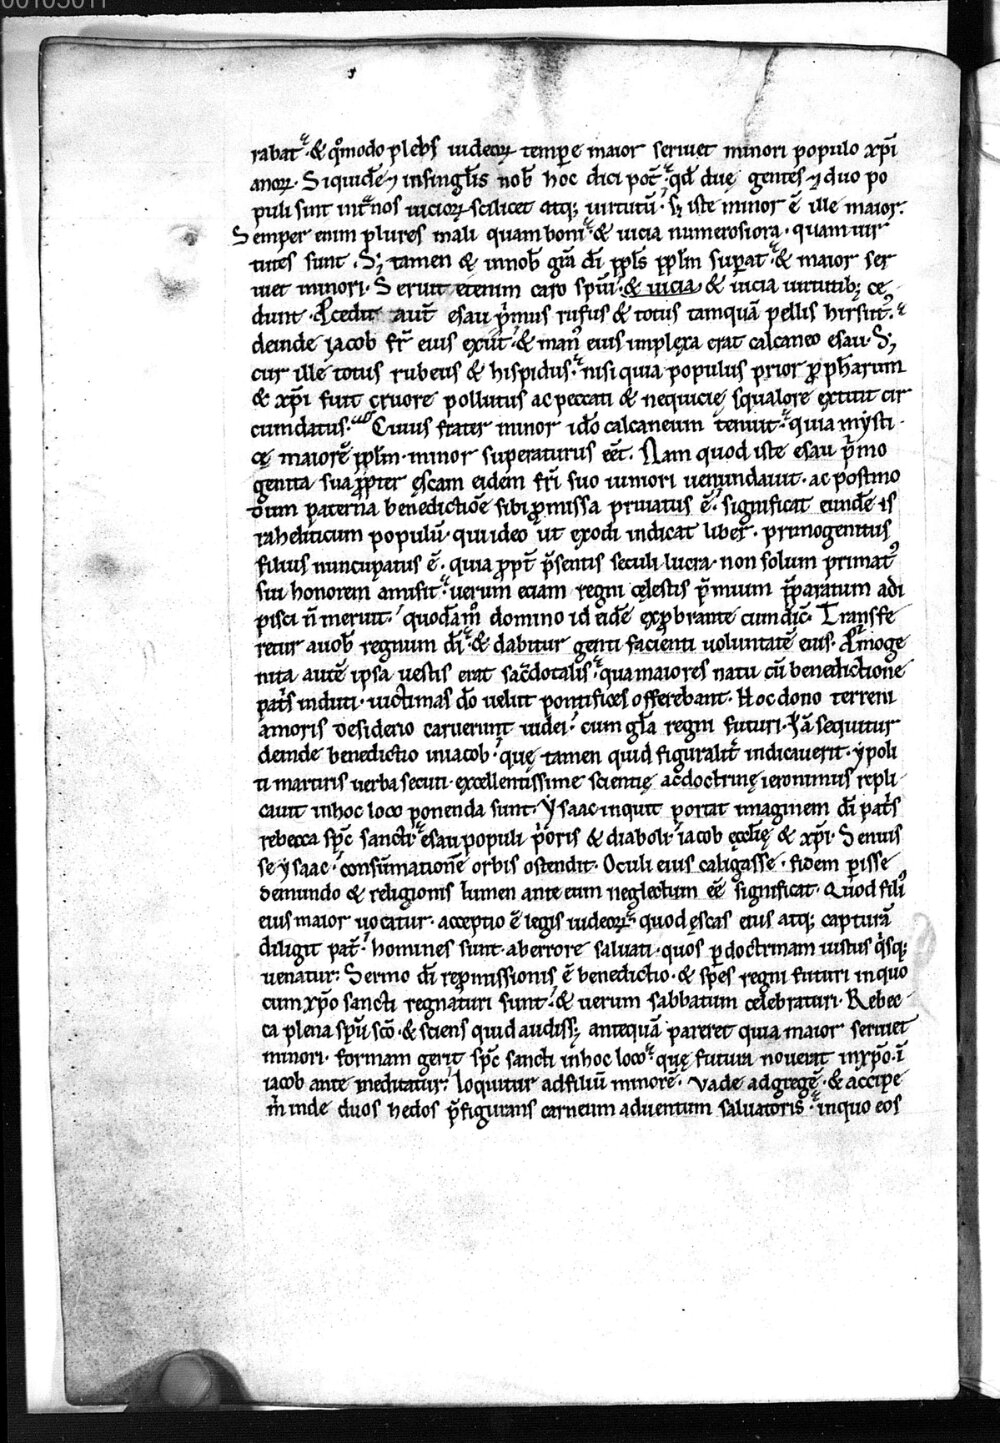 00105011
rabat̄· & qͦmodo plebs iudeoꝝ tempe maior seruiet minori populo xp̄i
anoꝝ· Siquidē ⁊ insingl̄is nob̄ hoc dici pot̄· qd̄ duę gentes ⁊ duo po
puli sunt int̄ nos uicioꝝ scilicet atq; uirtutū· sꝫ iste minor ē ille maior·
Semper enim plures mali quam boni· & uicia numerosiora· quam uir
tutes sunt· Sꝫ tamen & innob̄ gr̄a dī ppl̄s ppl̄m supat· & maior ser
uiet minori· Seruit etenim caro spūi· & uicia & uicia uirtutib; ce
dunt· Precedit aut̄ esau p̄mus rufus & totus tamquā pellis hirsut̄·
deinde iacob fr̄ eius exiit· & man᷒ eius implexa erat calcaneo esau· Sꝫ
cur ille totus rubeus & hispidus· nisi quia populus prior ꝓph̄arum
& xp̄i fuit cruore pollutus ac peccati & nequicię squalore extitit cir
cumdatus· Cuius frater minor idō calcaneum tenuit· quia mysti
cę maiorē ppl̄m· minor superaturus eēt· Nam quod iste esau p̄mo
genita sua ꝓpter ęscam eidem fr̄i suo iuniori uenundauit· ac postmo
dum paterna benedictiōe sibi ꝓmissa priuatus ē· significat eundē is
rahelīticum populū· qui ideo ut exodi indicat liber· primogenitus
filius nuncupatus ē· quia ꝓpt̄ p̄sentis seculi lucra· non solum primat᷒
sui honorem amisit· uerum etiam regni cęlestis p̄mium p̄paratum adi
pisci n̄ meruit· quodāmͦ domino id eidē exꝓbrante cum dic̄· Transfe
retur auob̄ regnum dī· & dabitur genti facienti uoluntatē eius· Primoge
nita autē ipsa uestis erat sac̄dotalis· qua maiores natu cū benedictione
pat̄s induti· uictimas dō uelut pontifices offerebant· Hoc dono terreni
amoris desiderio caruerunt iudei· cum gl̄a regni futuri· Iā sequitur
deinde benedictio iniacob· quę tamen quid figuralit̄ indicauerit· ypoli
ti martiris uerba secuti· excellentissime scientię ac doctrinę ieronimus repli
cauit inhoc loco ponenda sunt· Ysaac inquit portat imaginem dī pat̄s
rebecca spc̄ sancti· esau populi p̄oris & diaboli· iacob ęcclię & xp̄i· Senuis
se ysaac· consūmationē orbis ostendit· Oculi eius caligasse· fidem perisse
demundo & religionis lumen ante eum neglectum eē significat· Quod fili᷒
eius maior uocatur· acceptio ē legis iudeoꝝ· quod ęscas eius atq; capturā
diligit pat̄· homines sunt aberrore saluati· quos p doctrinam iustus q̄sq;
uenatur· Sermo dī repmissionis ē benedictio· & spes regni futuri inquo
cum xp̄o sancti regnaturi sunt· & uerum sabbatum celebraturi· Rebec
ca plena spū scō· & sciens quid audiss; antequā pareret quia maior seruiet
minori· formam gerit spc̄ sancti inhoc loco· quę futura nouerat inxp̄o· ī
iacob ante meditatur· loquitur adfiliū minorē· Vade adgregē· & accipe
m̄ inde duos hedos p̄figurans carneum aduentum saluatoris· inquo eos